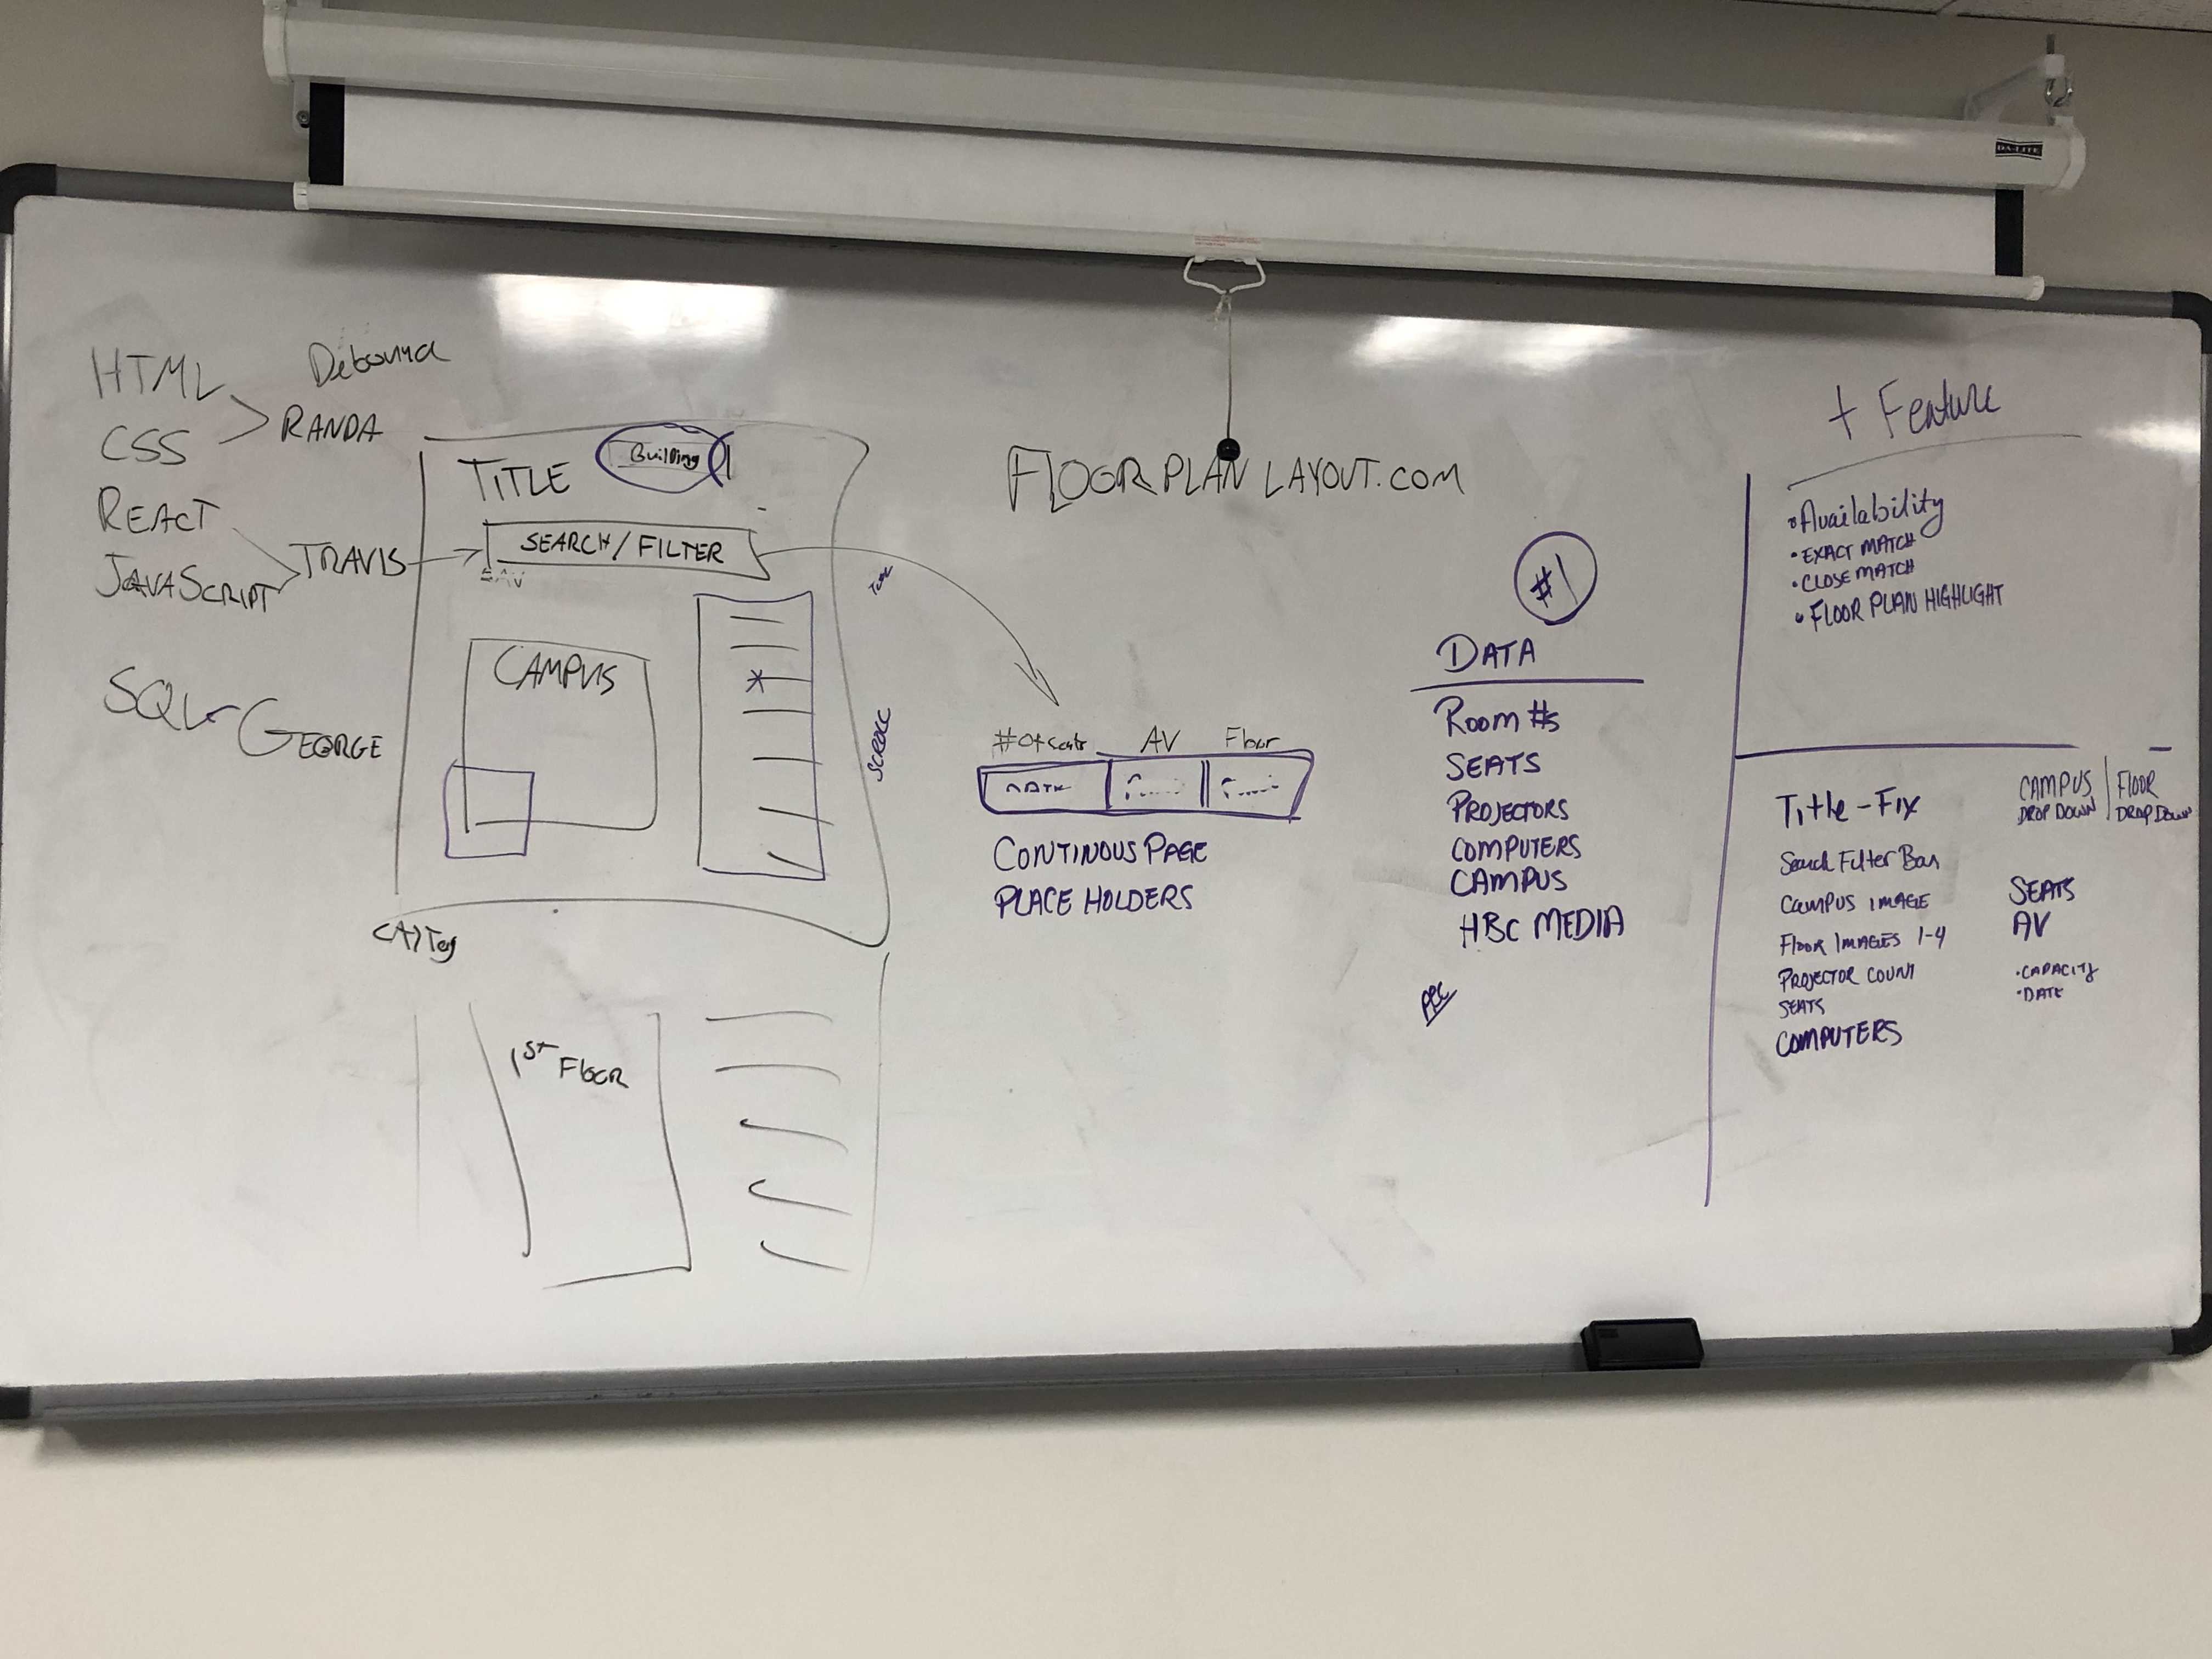 DA-LITE
HTML
CSS
RANDA
REACT
JAVASCRIPT
TRAVIS
SQL
GEORGE
TITLE
Building
SEARCH/FILTER
CAMPUS
SCROLL
<A> Tag
1ST FLOOR
FLOOR PLAN LAYOUT.COM
# of seats AV Floor
CONTINOUS PAGE
PLACE HOLDERS
#1
DATA
ROOM #s
SEATS
PROJECTORS
COMPUTERS
CAMPUS
HBC MEDIA
+ Feature
• Availability
• EXACT MATCH
• CLOSE MATCH
• FLOOR PLAN HIGHLIGHT
Title - Fix
Search Filter Bar
CAMPUS IMAGE
FLOOR IMAGES 1-4
PROJECTOR COUNT
SEATS
COMPUTERS
CAMPUS
DROP DOWN
FLOOR
DROP DOWN
SEATS
AV
• CAPACITY
• DATE